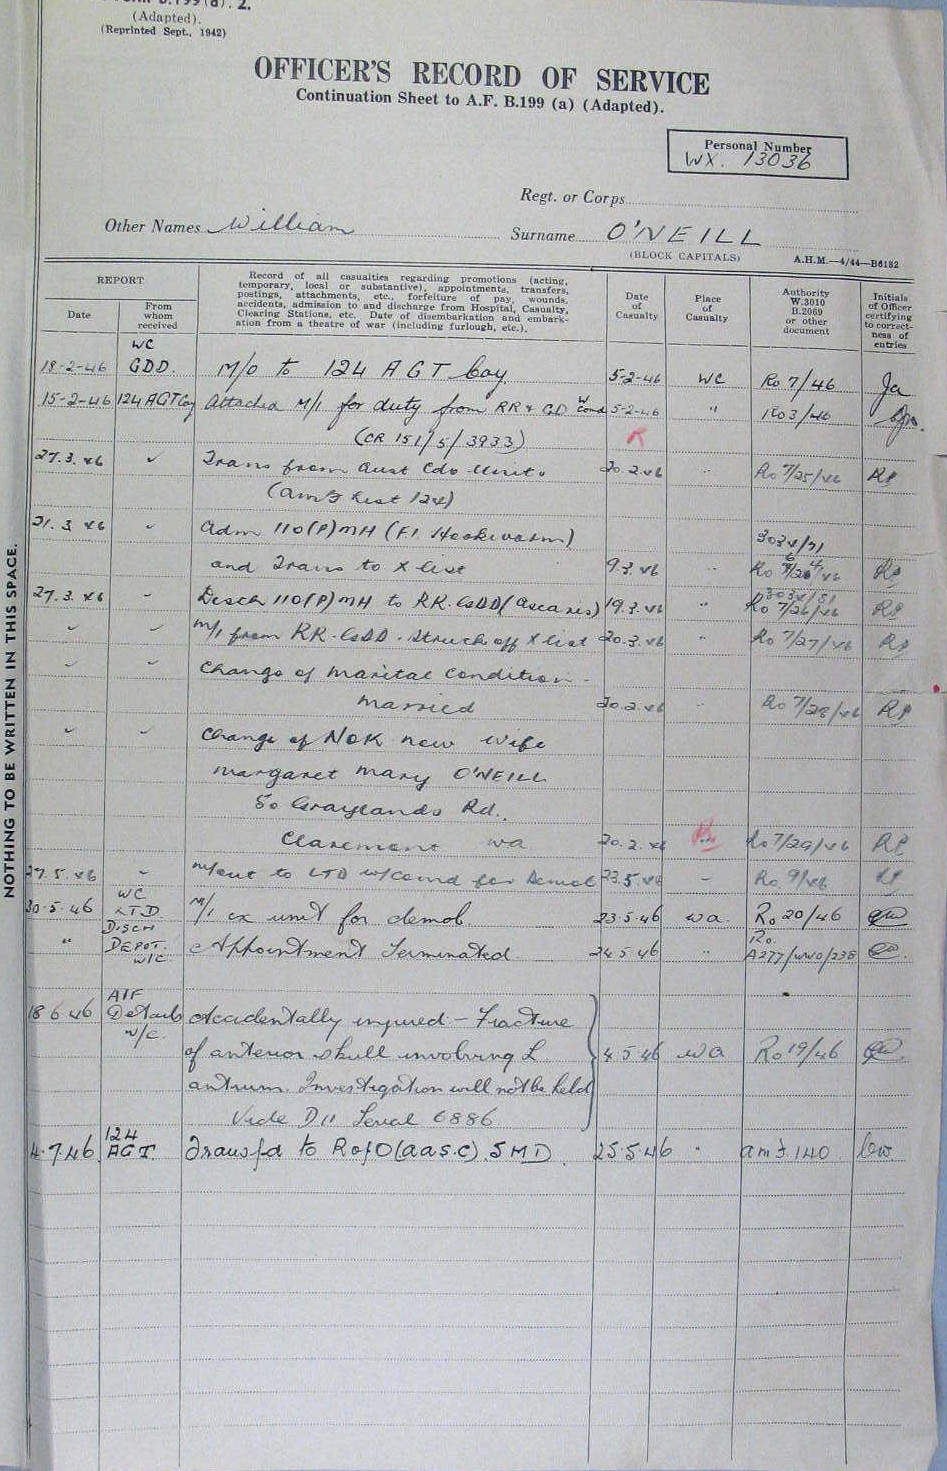 (Adapted).
(Reprinted Sept., 1942)
OFFICER'S RECORD OF SERVICE
Continuation Sheet to A.F. B.199 (a) (Adapted).
Personal Number
WX. 13036
Regt. or Corps
Other Names William Surname O'NEILL
(BLOCK CAPITALS) A.H.M.—4/44—B6182
REPORT
Date
From whom received
Record of all casualties regarding promotions (acting,
temporary, local or substantive), appointments, transfers,
postings, attachments, etc., forfeiture of pay, wounds,
accidents, admission to and discharge from Hospital, Casualty,
Clearing Stations, etc. Date of disembarkation and embark-
ation from a theatre of war (including furlough, etc.).
Date of Casualty
Place of Casualty
Authority W.3010 B.2069 or other document
Initials of Officer certifying to correct-ness of entries
WC
18-2-46 GDD. M/O to 124 AGT Coy 5-2-46 WC Ro 7/46
15-2-46 124 AGT Coy Attached M/I for duty from RR & GD W Comd 5-2-46 " Ro3/46
(CR 151/5/3933) R
27.3.46 " Trans from Aust Cdo Units 20.2.46 " Ro 7/25/46 RP
(AMF List 124)
21.3.46 " Adm 110(P)MH (F.I. Hookworm)
and Trans to X list 9.3.46 " RP
27.3.46 " Disch 110(P)MH to RR.GDD (Ascaris) 19.3.46 " Ro 7/26/46 RP
" " M/I from RR.GDD. Struck off X list 20.3.46 " Ro 7/27/46 RP
" " Change of Marital Condition -
Married 20.2.46 " Ro 7/28/46 RP
" " Change of NOK now Wife
Margaret Mary O'NEILL
50 Graylands Rd.,
Claremont WA 20.2.46 Ro 7/29/46 RP
27.5.46 " M/out to LTD W/Comd for Demob 23.5.46 - Ro 9/46 RP
WC
30-5-46 LTD. M/I ex unit for demob 23.5.46 WA. Ro 20/46
DISCH
" DEPOT. Appointment Terminated. 24.5.46 " Ro.
W/C. A277/WWO/238
AIF
18 6 46 Details Accidentally injured - Fracture
W/C. of anterior skull involving L 4.5.46 WA Ro 19/46
antrum. Investigation will not be held
Vide D11 Serial 6886
124
4.7.46 AGT Transfd to RofO (AASC) SMD. 25.5.46 " AMF. 140
NOTHING TO BE WRITTEN IN THIS SPACE.